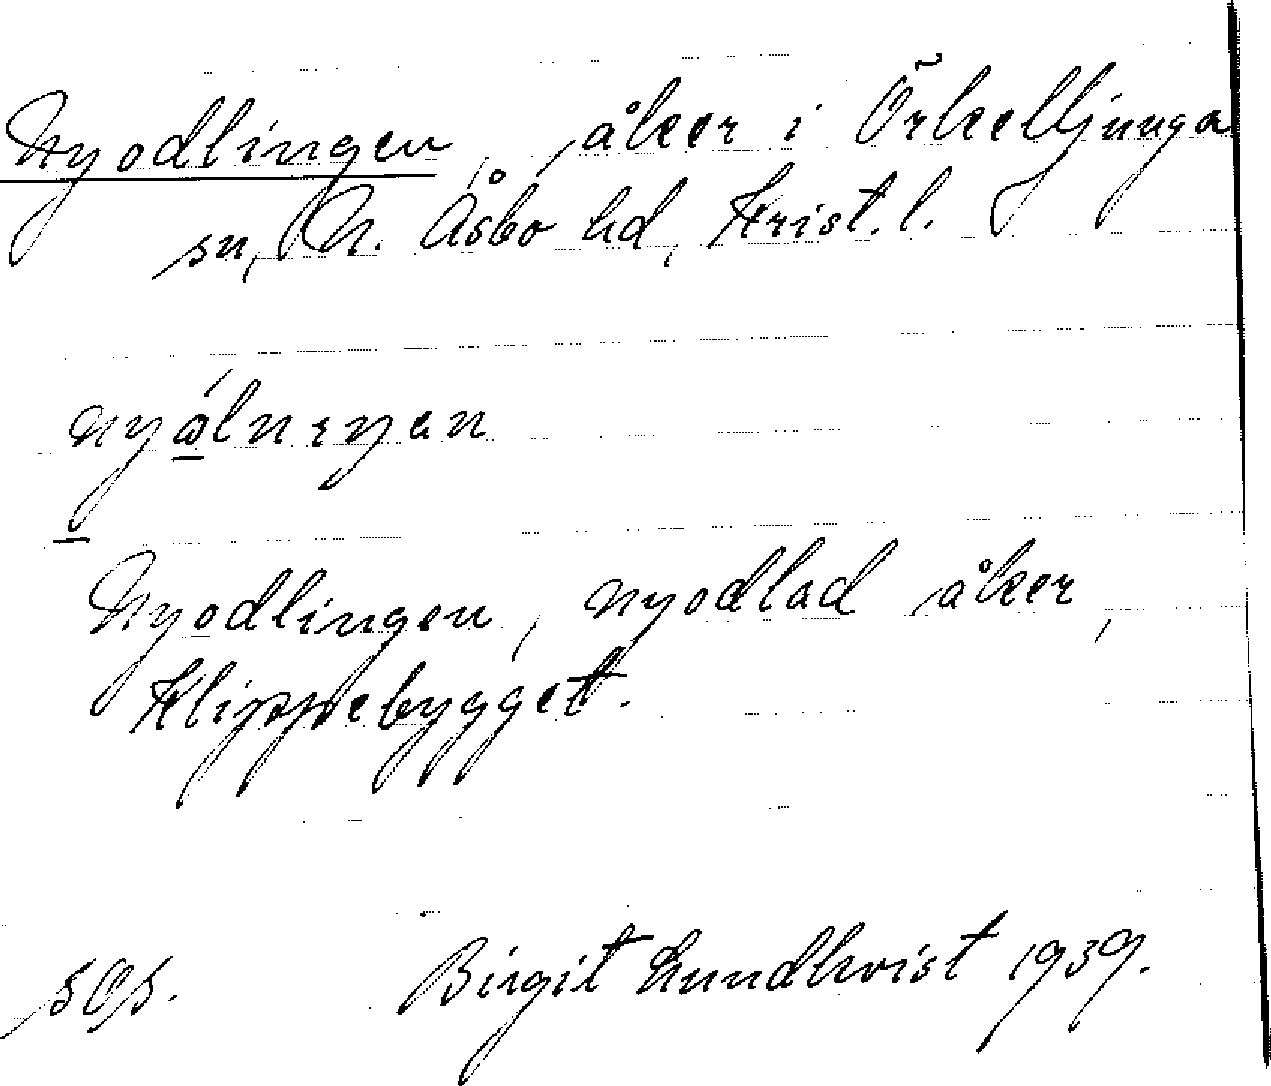 Nyodlingen, åker i Örkelljunga
sn, N. Åsbo hd, Krist. l.
Nyodlingen, nyodlad åker,
Klippebygget.
Birgit Lundkvist 1939.